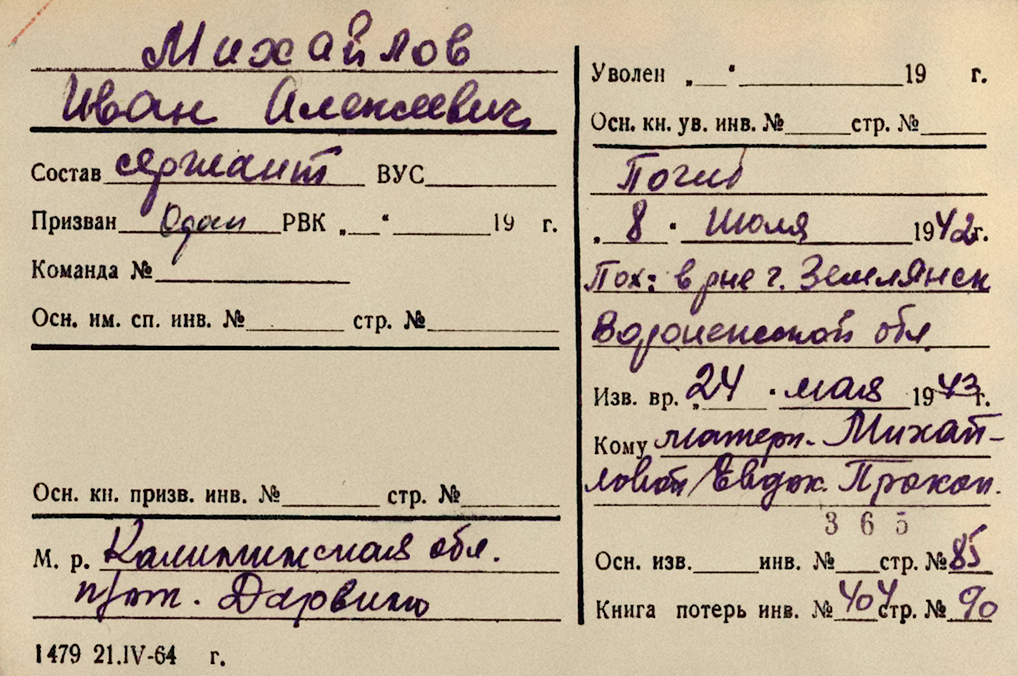 Михайлов
Иван Алексеевич
Состав сержант ВУС
Призван РВК „ “ 19 г.
Команда №
Осн. им. сп. инв. № стр. №
Осн. кн. призв. инв. № стр. №
М. р. Калининская обл.
Дарвино
1479 21.IV-64 г.
Уволен „ “ 19 г.
Осн. кн. ув. инв. № стр. №
Погиб
„ 8 “ Июля 1942 г.
Пох: в рне г. Землянск
Воронежской обл.
Изв. вр. „24 “ мая 1943 г.
Кому матери- Михай-
ловой Евдок. Прокоп.
365
Осн. изв. инв. № стр. № 85
Книга потерь инв. № 404 стр. № 90